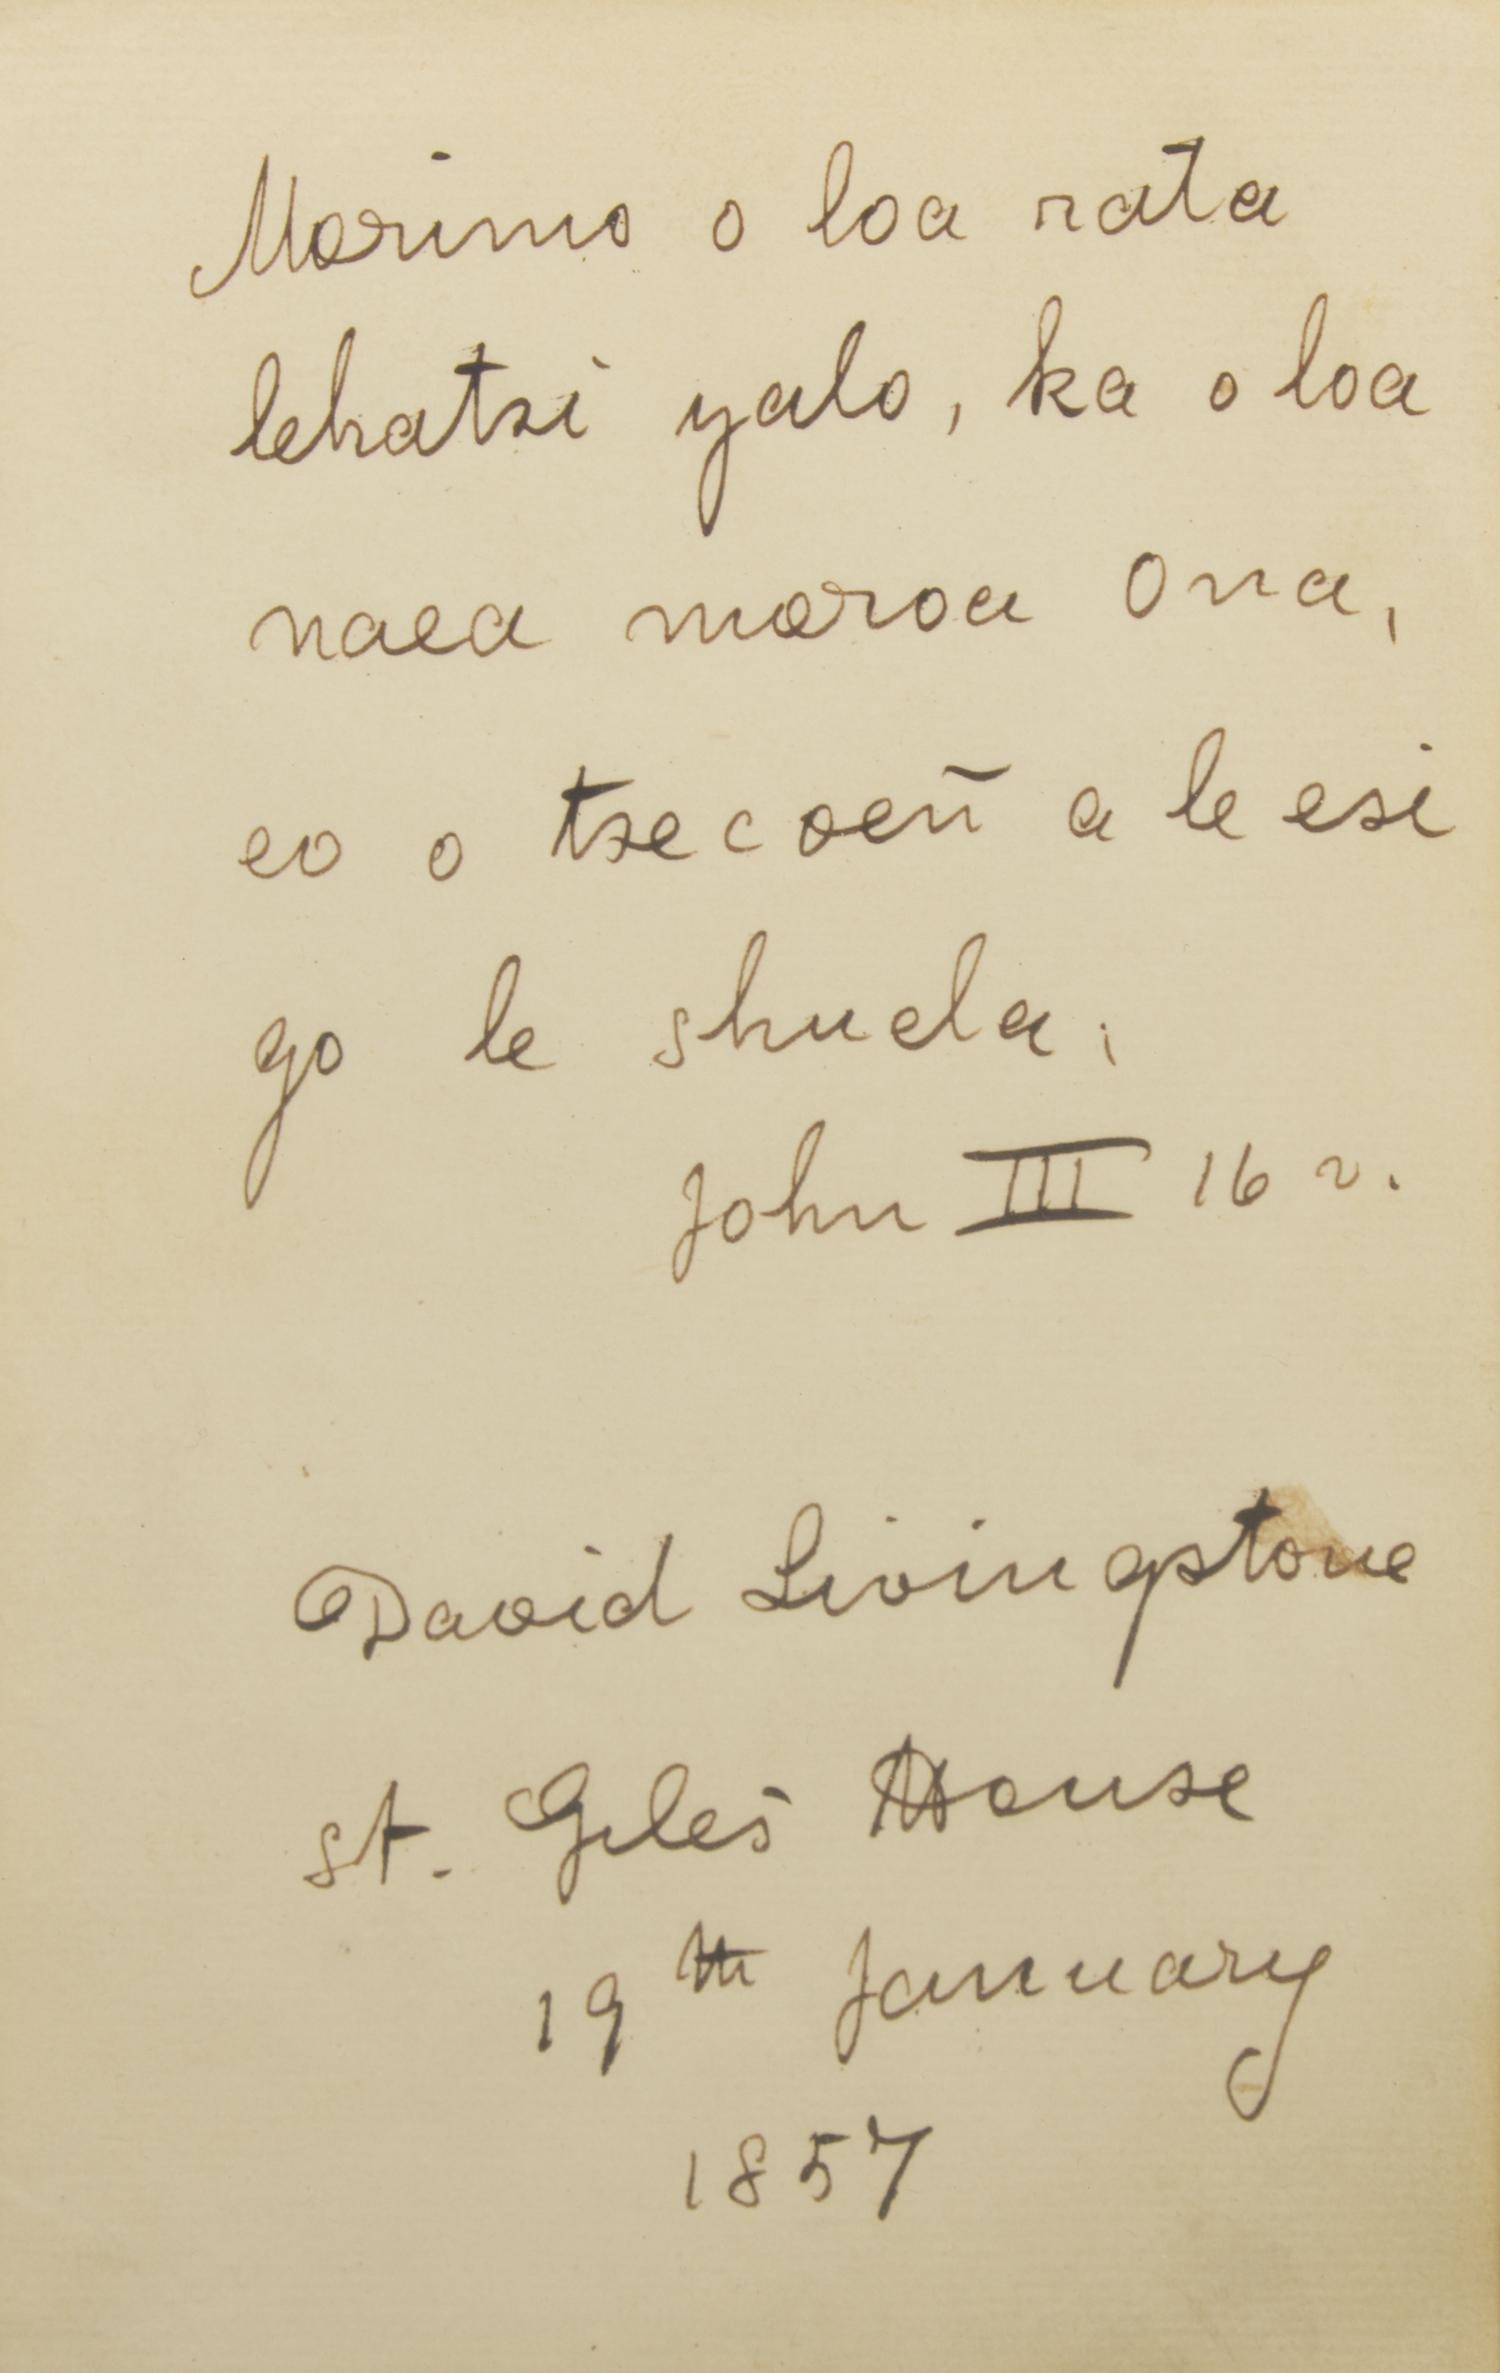 Morimo o loa rata
lehatsi yalo, ka o loa
naea moroa ona,
eo o tsecoeñ a le esi
go le shuela.
John III 16 v.
David Livingstone
St. Giles House
19th January
1857